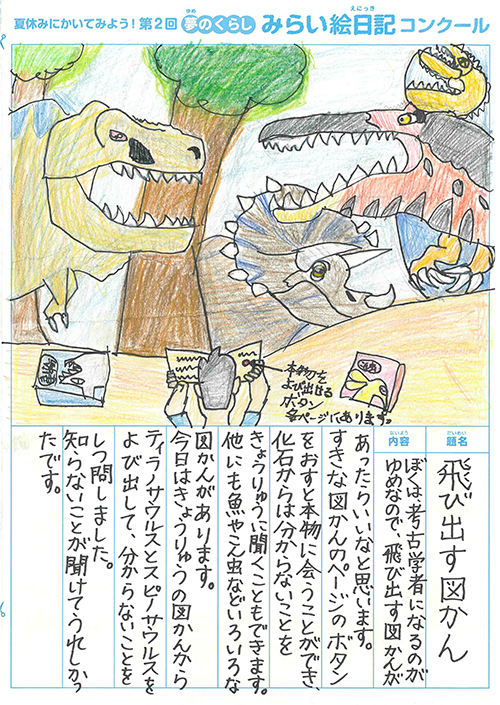 夏休みにかいてみよう！第2回 夢のくらし みらい絵日記コンクール
ゆめ
えにっき
本物を
よび出せる
ボタン
各ページにあります。
題名
だいめい
飛び出す図かん
内容
ないよう
ぼくは考古学者になるのが
ゆめなので、飛び出す図かんが
あったらいいなと思います。
すきな図かんのページのボタン
をおすと本物に会うことができ、
化石からは分からないことを
きょうりゅうに聞くこともできます。
他にも魚やこん虫などいろいろな
図かんがあります。
今日はきょうりゅうの図かんから
ティラノサウルスとスピノサウルスを
よび出して、分からないことを
しつ問しました。
知らないことが聞けてうれしかっ
たです。